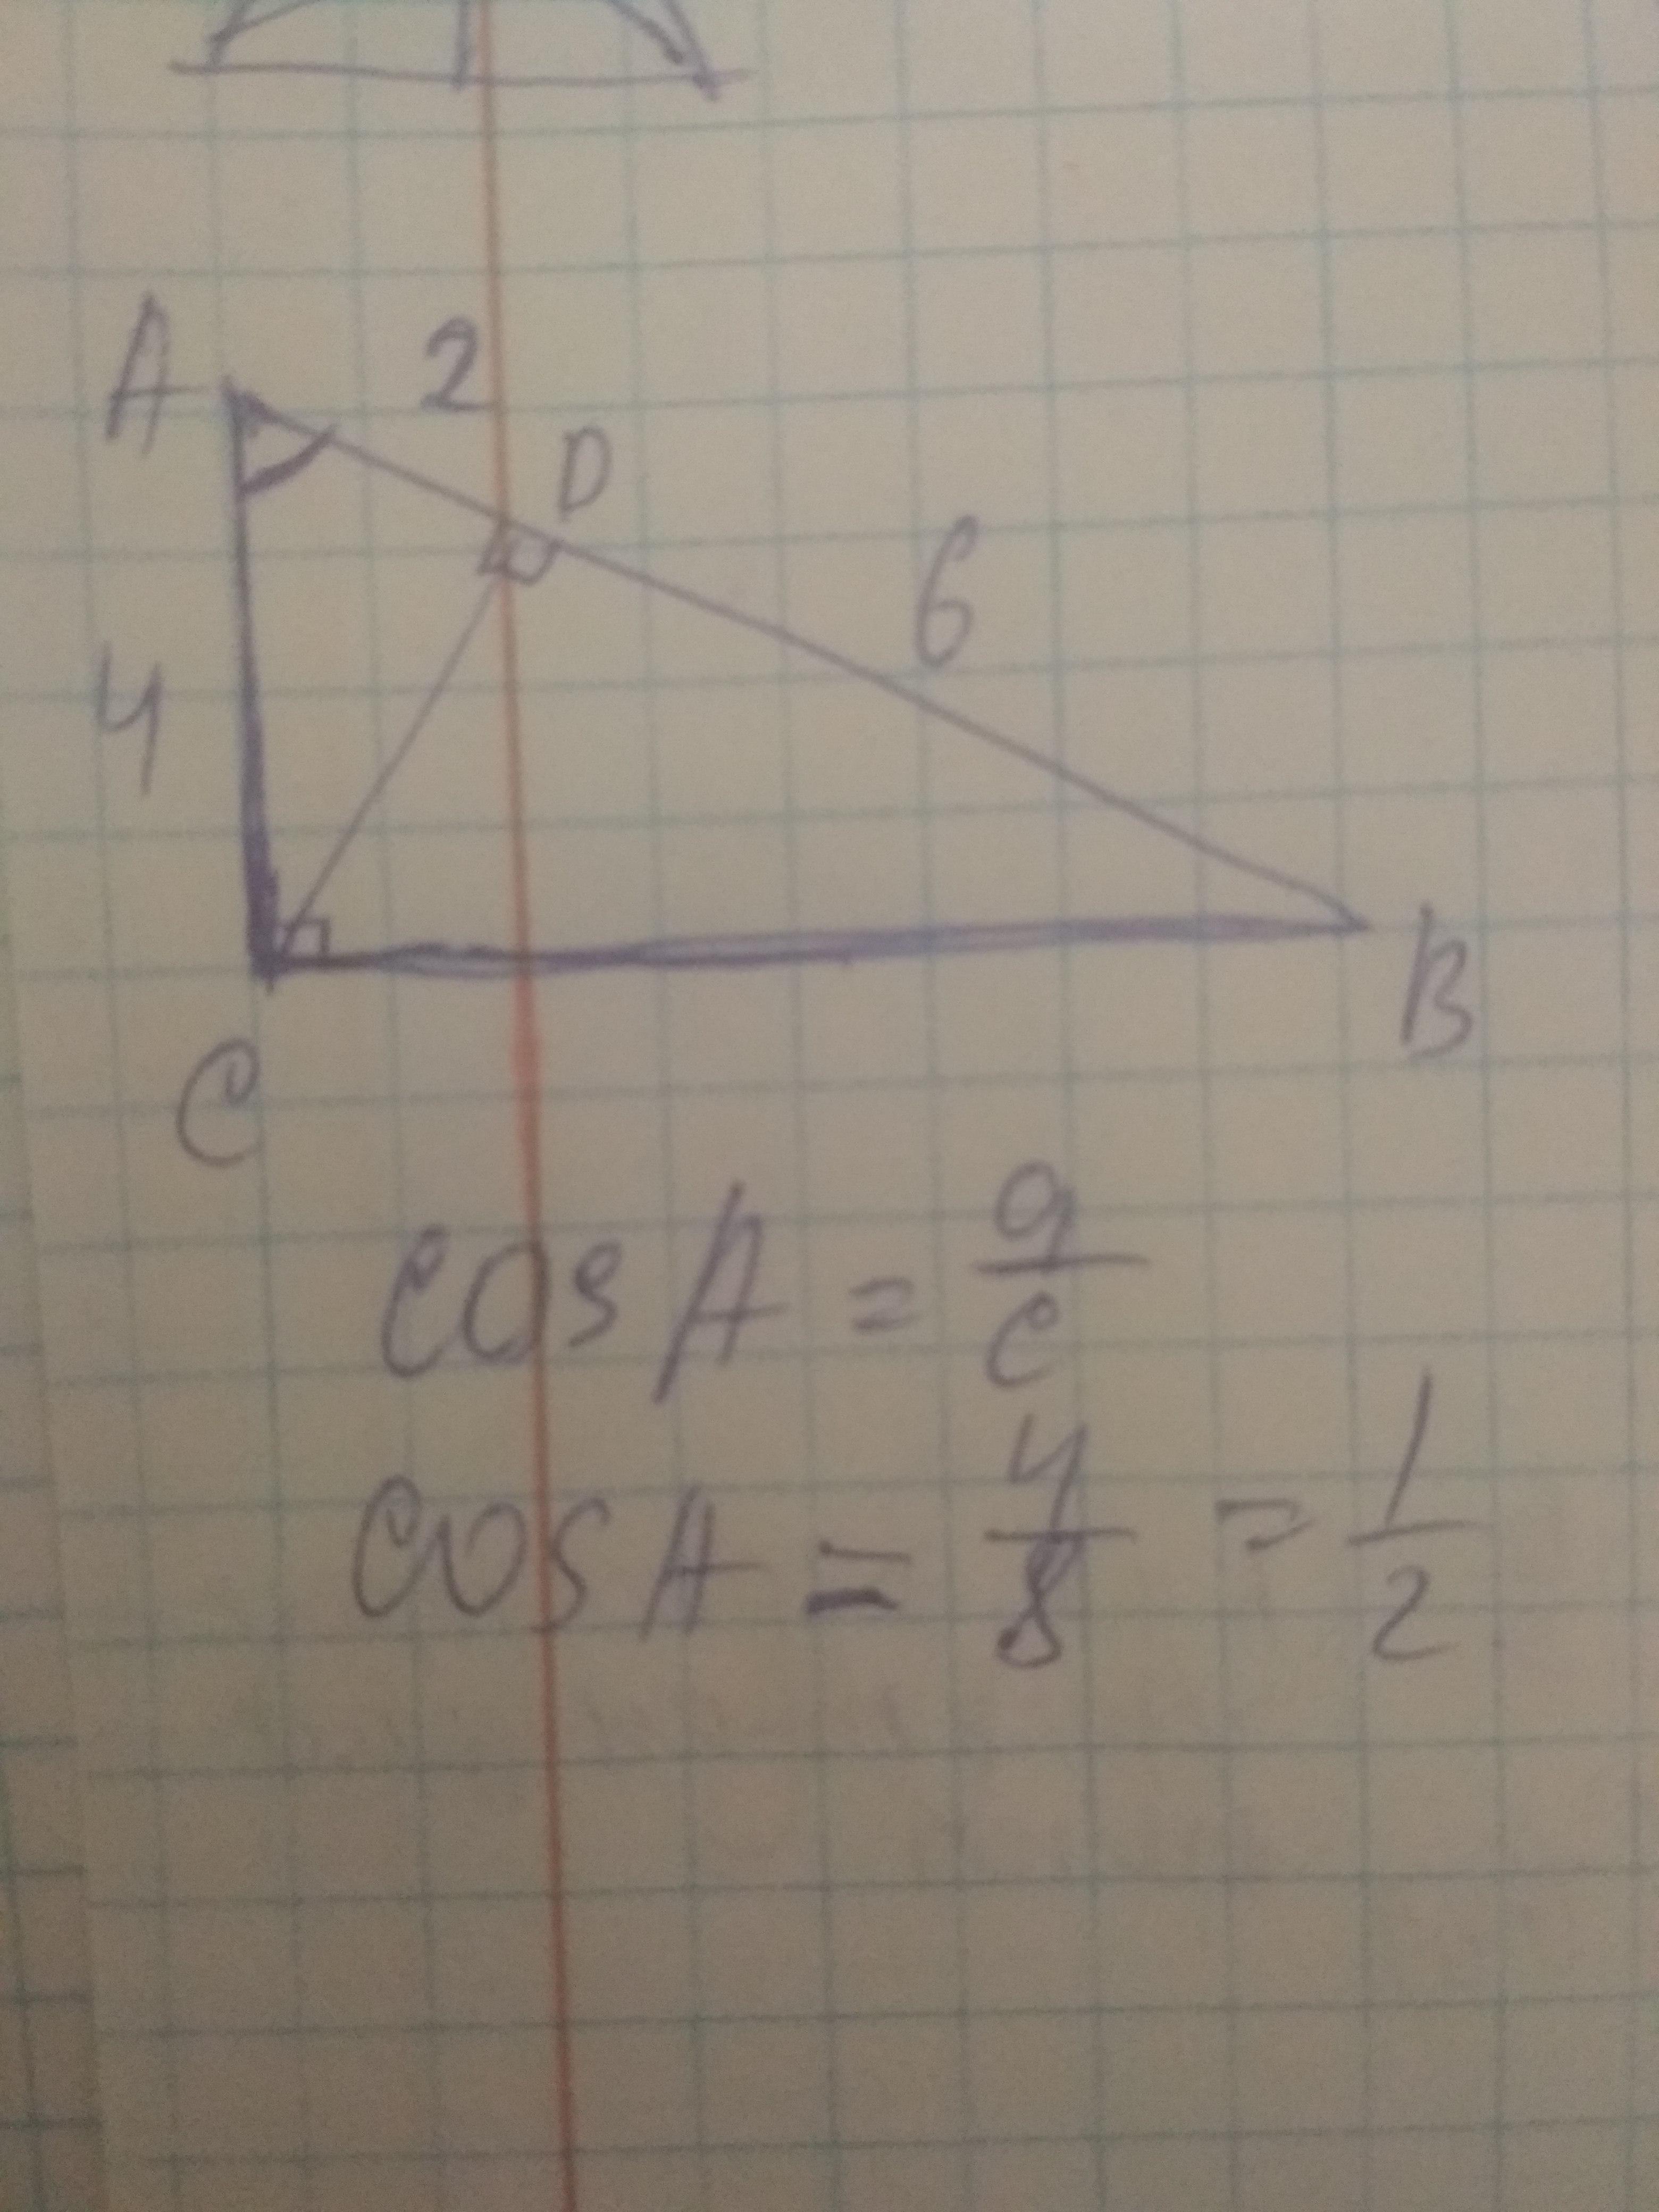 A 2
D
6
4
B
C
cos A = a/c
cos A = 4/8 = 1/2